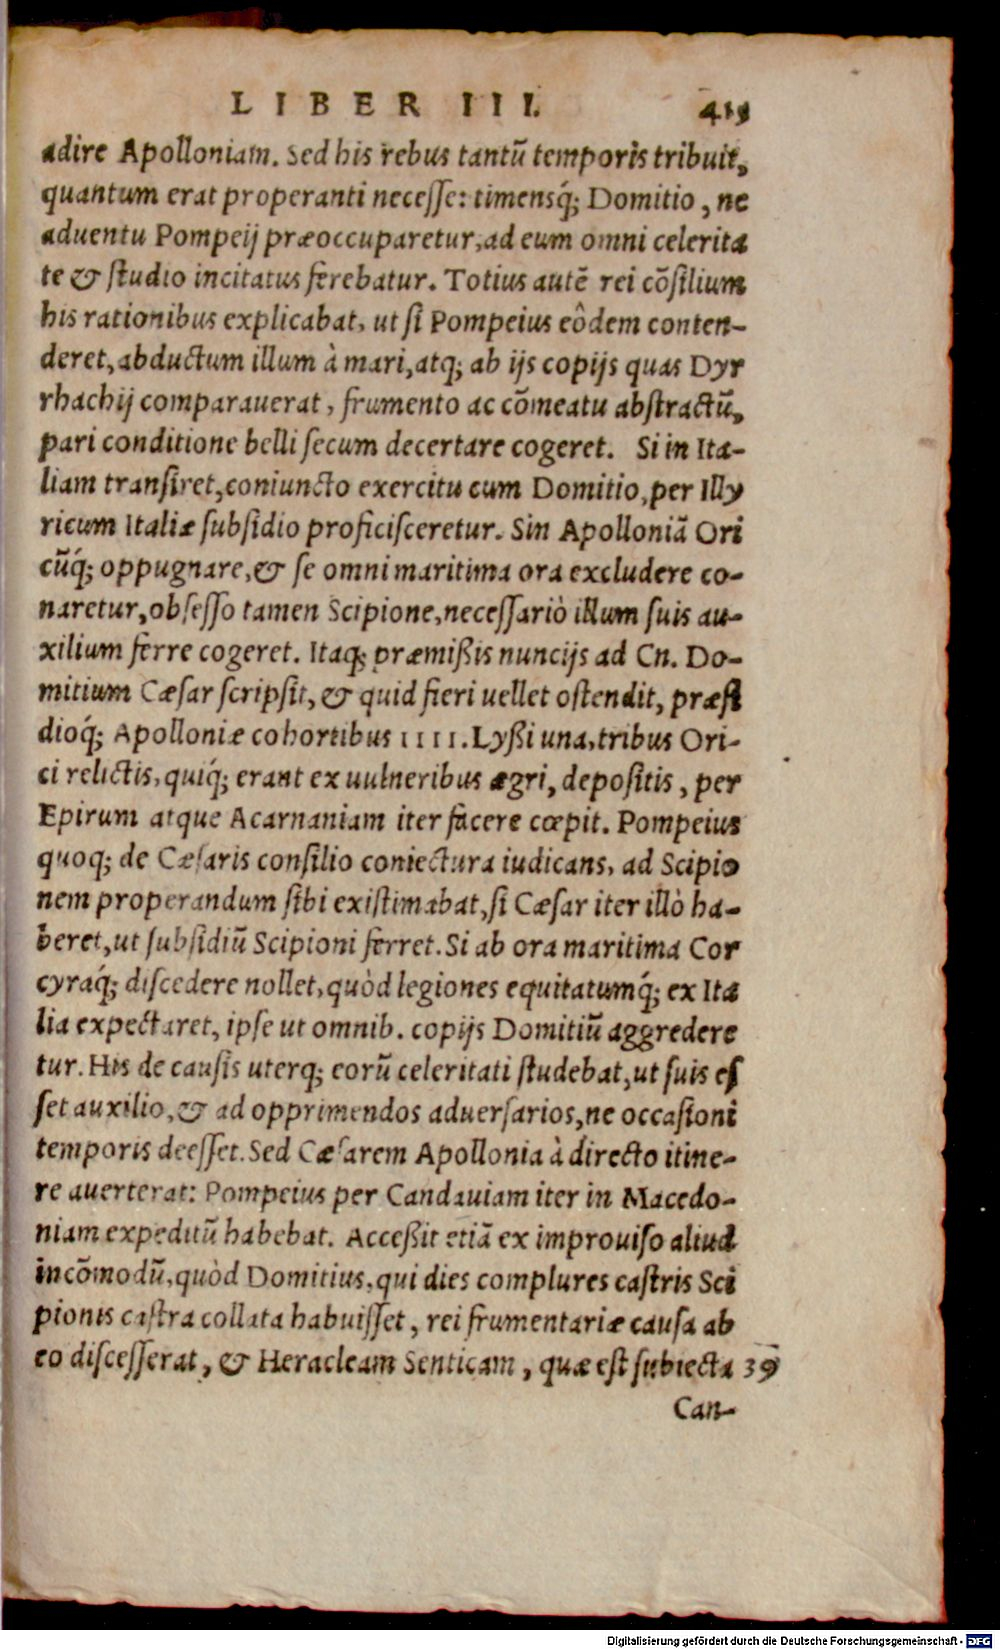 LIBER III. 419
adire Apolloniam. Sed his rebus tantũ temporis tribuit,
quantum erat properanti necesse: timensq́; Domitio, ne
aduentu Pompeij præoccuparetur, ad eum omni celerita
te & studio incitatus ferebatur. Totius autẽ rei cõsilium
his rationibus explicabat, ut si Pompeius eôdem conten-
deret, abductum illum à mari, atq; ab ijs copijs quas Dyr
rhachij comparauerat, frumento ac cõmeatu abstractũ,
pari conditione belli secum decertare cogeret. Si in Ita-
liam transiret, coniuncto exercitu cum Domitio, per Illy
ricum Italiæ subsidio proficisceretur. Sin Apolloniã Ori
cũq́; oppugnare, & se omni maritima ora excludere co-
naretur, obsesso tamen Scipione, necessariò illum suis au-
xilium ferre cogeret. Itaq; præmißis nuncijs ad Cn. Do-
mitium Cæsar scripsit, & quid fieri uellet ostendit, præsi
dioq́; Apolloniæ cohortibus IIII. Lyßi una, tribus Ori-
ci relictis, quiq́; erant ex uulneribus ægri, depositis, per
Epirum atque Acarnaniam iter facere cœpit. Pompeius
quoq; de Cæsaris consilio coniectura iudicans, ad Scipio
nem properandum sibi existimabat, si Cæsar iter illò ha-
beret, ut subsidiũ Scipioni ferret. Si ab ora maritima Cor
cyraq́; discedere nollet, quòd legiones equitatumq́; ex Ita
lia expectaret, ipse ut omnib. copijs Domitiũ aggredere
tur. His de causis uterq; eorũ celeritati studebat, ut suis es
set auxilio, & ad opprimendos aduersarios, ne occasioni
temporis deesset. Sed Cæsarem Apollonia à directo itine-
re auerterat: Pompeius per Candauiam iter in Macedo-
niam expeditũ habebat. Acceßit etiã ex improuiso aliud
incõmodũ, quòd Domitius, qui dies complures castris Sci
pionis castra collata habuisset, rei frumentariæ causa ab
eo discesserat, & Heracleam Senticam, quæ est subiecta 39
Can-
Digitalisierung gefördert durch die Deutsche Forschungsgemeinschaft - DFG